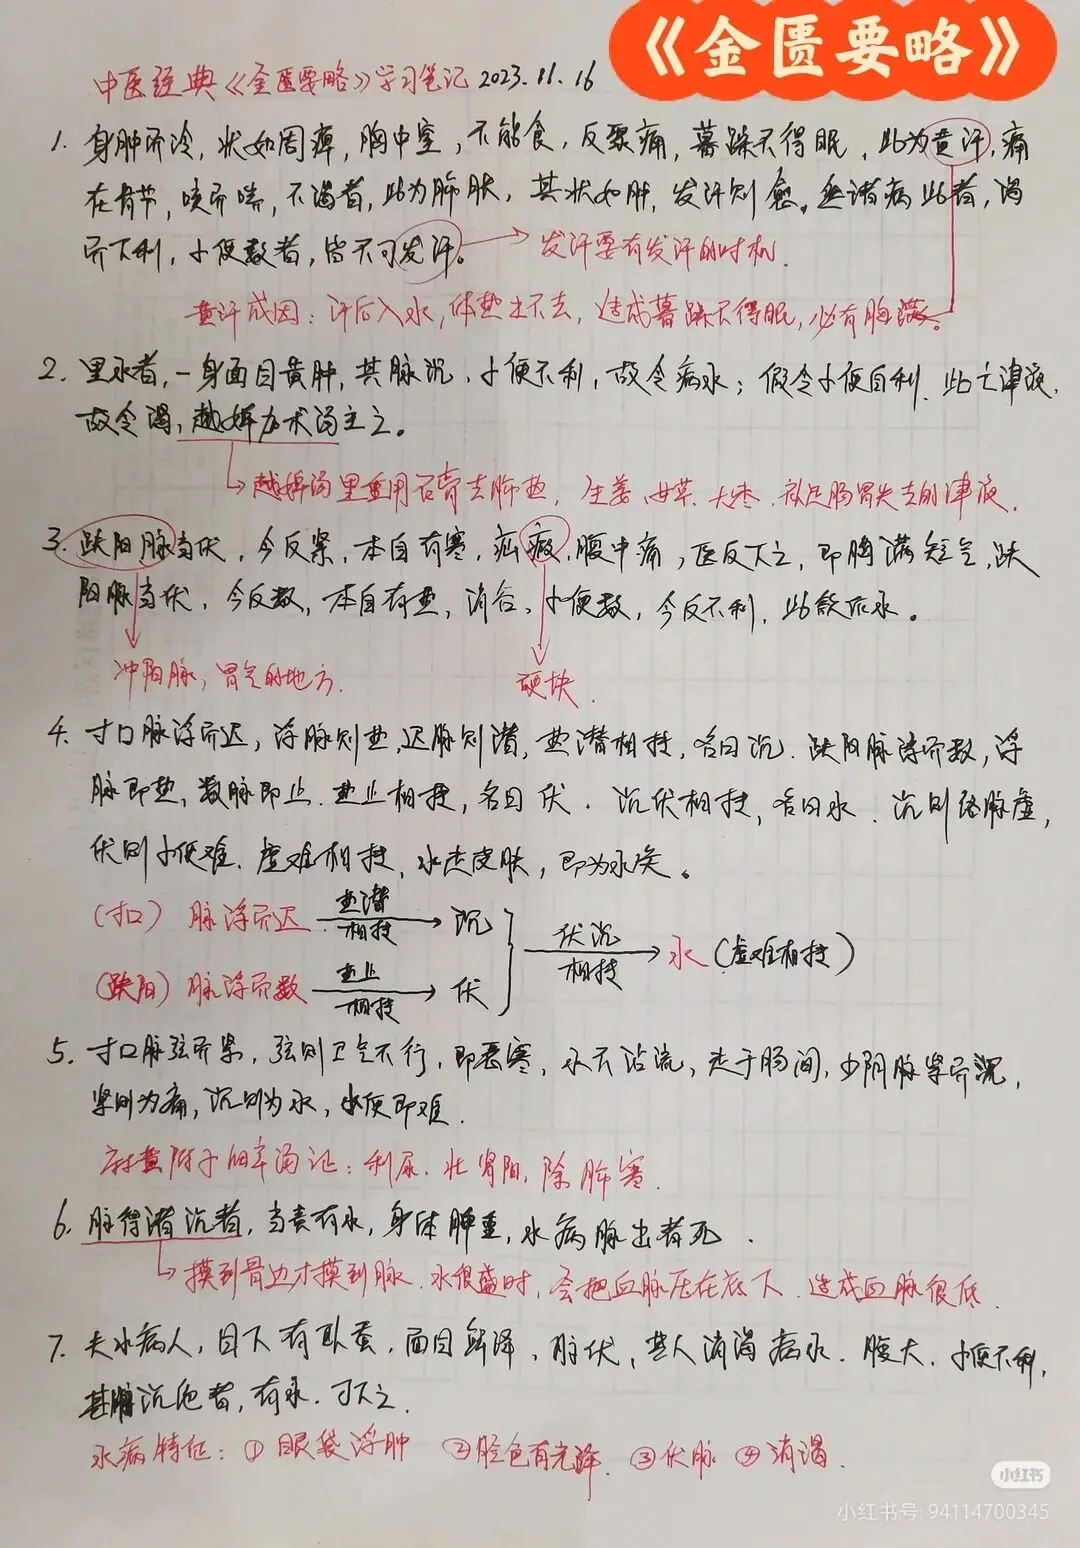 《金匮要略》
中医经典《金匮要略》学习笔记 2023.11.16
1. 身肿而冷, 状如周痹, 胸中窒, 不能食, 反聚痛, 暮躁不得眠, 此为黄汗, 痛
在骨节, 咳而喘, 不渴者, 此为肺胀, 其状如肿, 发汗则愈。然诸病此者, 渴
而下利, 小便数者, 皆不可发汗。
发汗要有发汗的时机.
黄汗成因: 汗后入水, 体热出不去, 造成暮躁不得眠, 必有胸满。
2. 里水者, 一身面目黄肿, 其脉沉, 小便不利, 故令病水; 假令小便自利, 此亡津液,
故令渴, 越婢加术汤主之。
越婢汤里重用石膏去肺热, 生姜 甘草 大枣 补足肠胃失去的津液.
3. 趺阳脉当伏, 今反紧, 本自有寒, 疝瘕, 腹中痛, 医反下之, 即胸满短气, 趺
阳脉当伏, 今反数, 本自有热, 消谷, 小便数, 今反不利, 此欲作水。
冲阳脉, 胃气的地方.
硬块.
4. 寸口脉浮而迟, 浮脉则热, 迟脉则潜, 热潜相搏, 名曰沉. 趺阳脉浮而数, 浮
脉即热, 数脉即止. 热止相搏, 名曰伏. 沉伏相搏, 名曰水. 沉则络脉虚,
伏则小便难. 虚难相搏, 水走皮肤, 即为水矣。
(寸口) 脉浮而迟 热潜 相搏 沉
伏沉 相搏 水 (虚难相搏)
(趺阳) 脉浮而数 热止 相搏 伏
5. 寸口脉弦而紧, 弦则卫气不行, 即恶寒, 水不沾流, 走于肠间, 少阴脉紧而沉,
紧则为痛, 沉则为水, 小便即难.
麻黄附子细辛汤证: 利尿. 壮肾阳, 除肺寒.
6. 脉得潜沉者, 当责有水, 身体肿重, 水病脉出者死.
摸到骨边才摸到脉. 水很盛时, 会把血脉压在底下. 造成血脉很低.
7. 夫水病人, 目下有卧蚕, 面目鲜泽, 脉伏, 其人消渴 病水. 腹大. 小便不利,
其脉沉绝者, 有水. 可下之.
水病特征: ① 眼袋浮肿 ② 脸色有光泽. ③ 伏脉 ④ 消渴.
小红书
小红书号: 94114700345